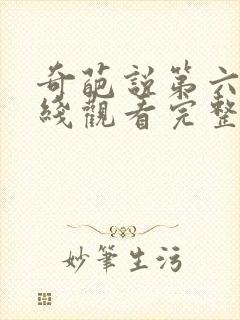 奇葩説第六
綫觀看完整
妙筆生污